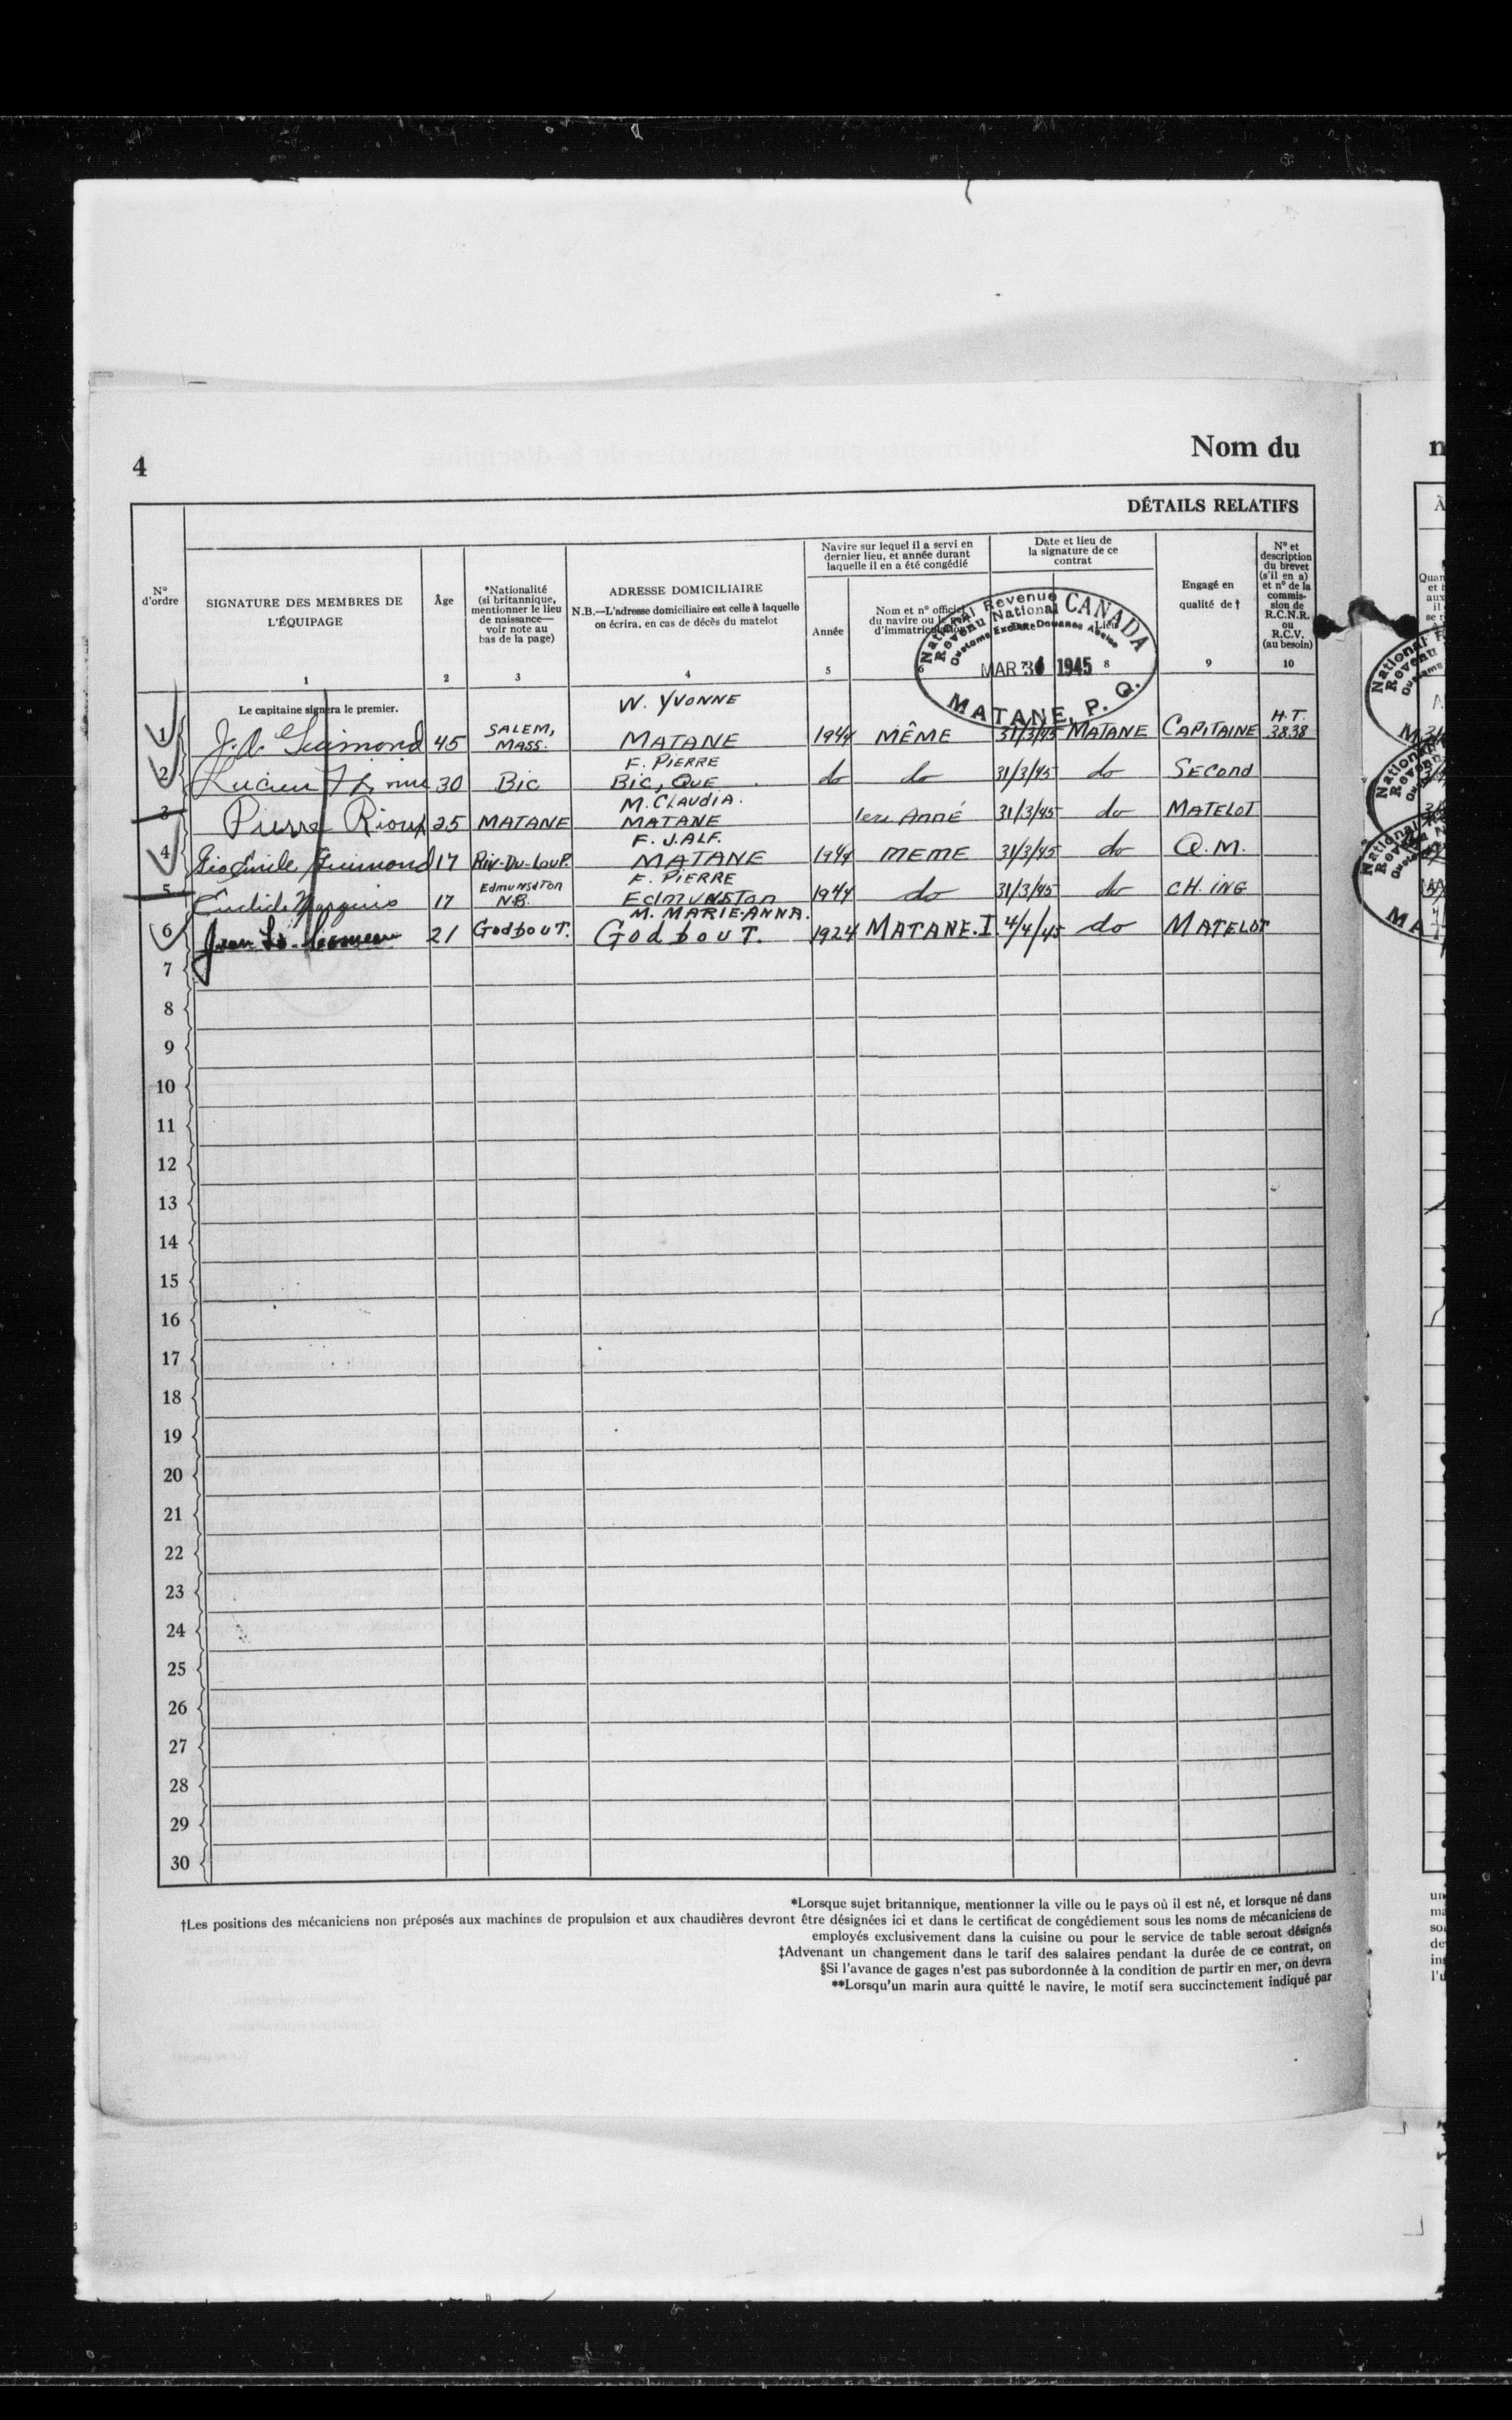 4
Nom du
DÉTAILS RELATIFS
N° d'ordre
SIGNATURE DES MEMBRES DE L'ÉQUIPAGE
1
Âge
2
*Nationalité
(si britannique,
mentionner le lieu
de naissance—
voir note au
bas de la page)
3
ADRESSE DOMICILIAIRE
N.B.—L'adresse domiciliaire est celle à laquelle
on écrira, en cas de décès du matelot
4
Navire sur lequel il a servi en
dernier lieu, et année durant
laquelle il en a été congédié
Année
5
Nom et n° officiel
du navire ou
d'immatriculation
6
Date et lieu de
la signature de ce
contrat
Lieu
8
Engagé en
qualité de †
9
N° et
description
du brevet
(s'il en a)
et n° de la
commis-
sion de
R.C.N.R.
ou
R.C.V.
(au besoin)
10
National Revenue CANADA
Revenu National
Customs Excise Douanes Accise
MAR 31 1945
MATANE, P. Q.
Le capitaine signera le premier.
W. YVONNE
1 J.A. Guimond 45 SALEM, MASS. MATANE 1944 MÊME 31/3/45 MATANE CAPITAINE H.T. 3838
F. PIERRE
2 Lucien 30 BIC BIC, QUE do do 31/3/45 do SECOND
M. CLAUDIA.
3 Pierre Rioux 25 MATANE MATANE 1ere ANNÉ 31/3/45 do MATELOT
F. J. ALF.
4 Guimond 17 RIV-DU-LOUP. MATANE 1944 MEME 31/3/45 do Q.M.
F. PIERRE
5 Euclide Marquis 17 EDMUNSTON N.B. EDMUNSTON 1944 do 31/3/45 do CH. ING
M. MARIE-ANNA.
6 Jean 21 GODBOUT. GODBOUT. 1924 MATANE. I 4/4/45 do MATELOT
7
8
9
10
11
12
13
14
15
16
17
18
19
20
21
22
23
24
25
26
27
28
29
30
*Lorsque sujet britannique, mentionner la ville ou le pays où il est né, et lorsque né dans
†Les positions des mécaniciens non préposés aux machines de propulsion et aux chaudières devront être désignées ici et dans le certificat de congédiement sous les noms de mécaniciens de
employés exclusivement dans la cuisine ou pour le service de table seront désignés
‡Advenant un changement dans le tarif des salaires pendant la durée de ce contrat, on
§Si l'avance de gages n'est pas subordonnée à la condition de partir en mer, on devra
**Lorsqu'un marin aura quitté le navire, le motif sera succinctement indiqué par